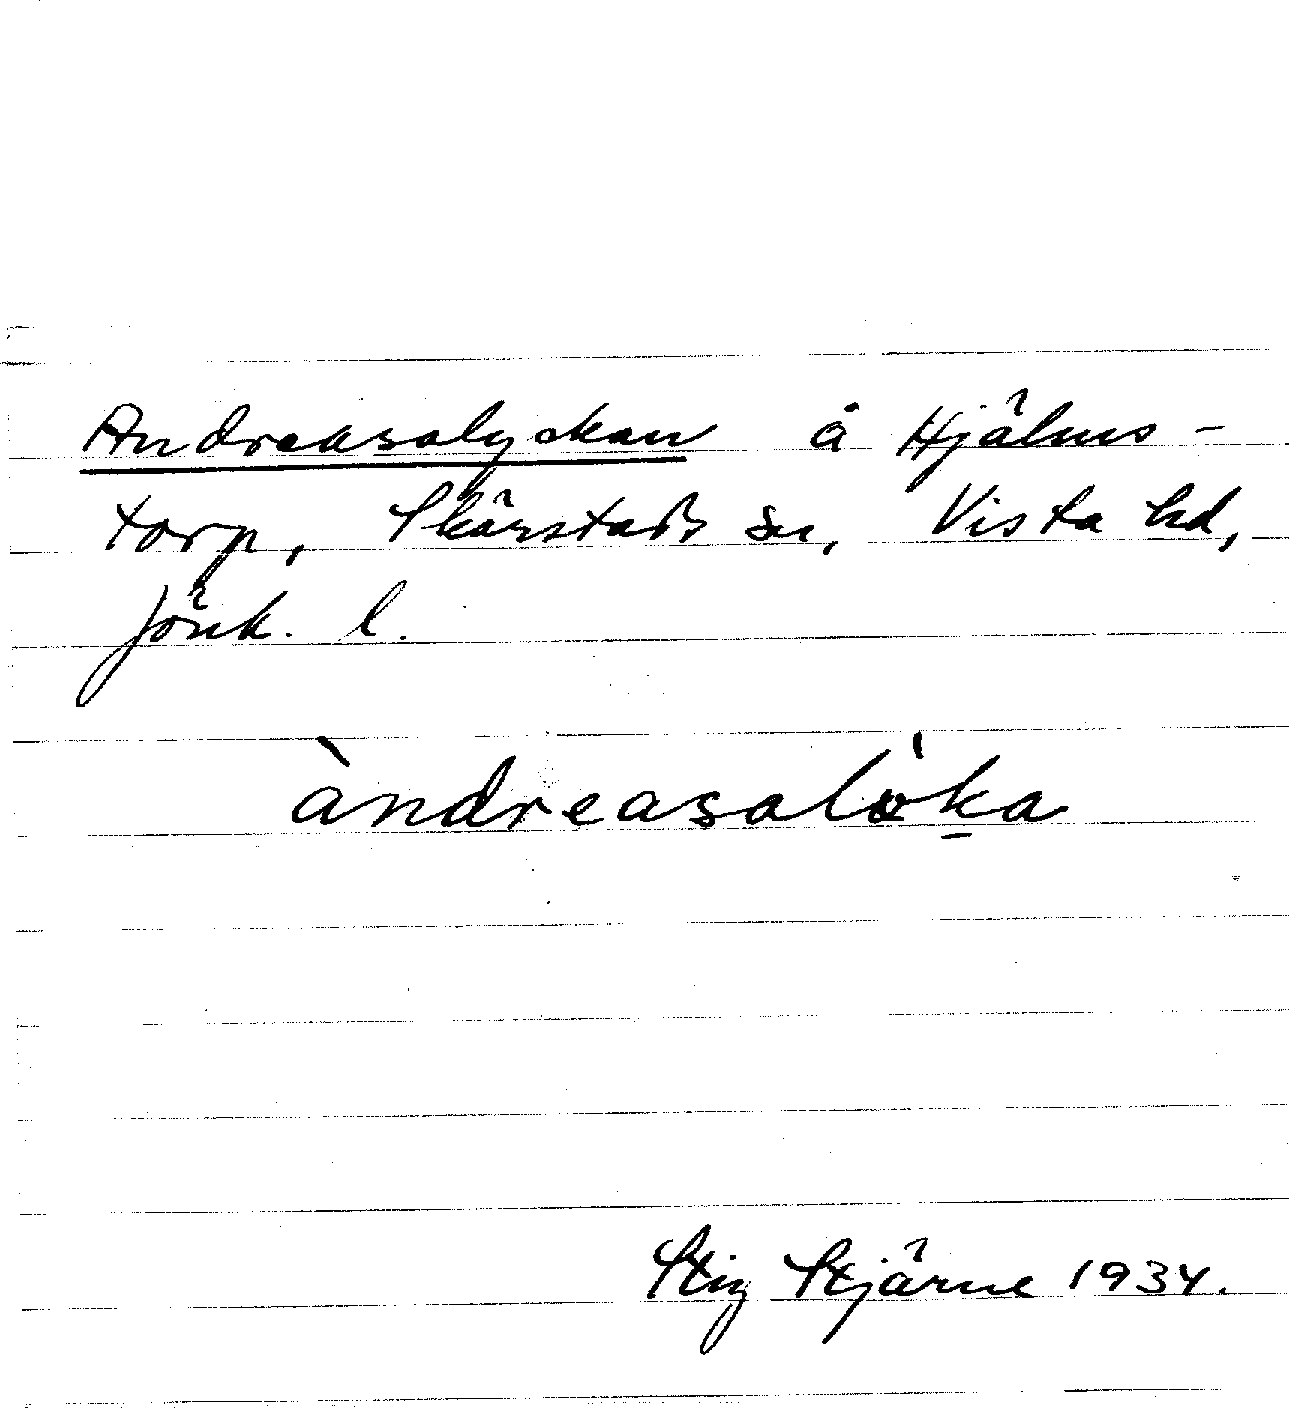 Andreasalyckan å Hjälms-
torp, Skärstads sn, Vista hd,
Jönk. l.
àndreasalö̀ka
Stig Stjärne 1934.